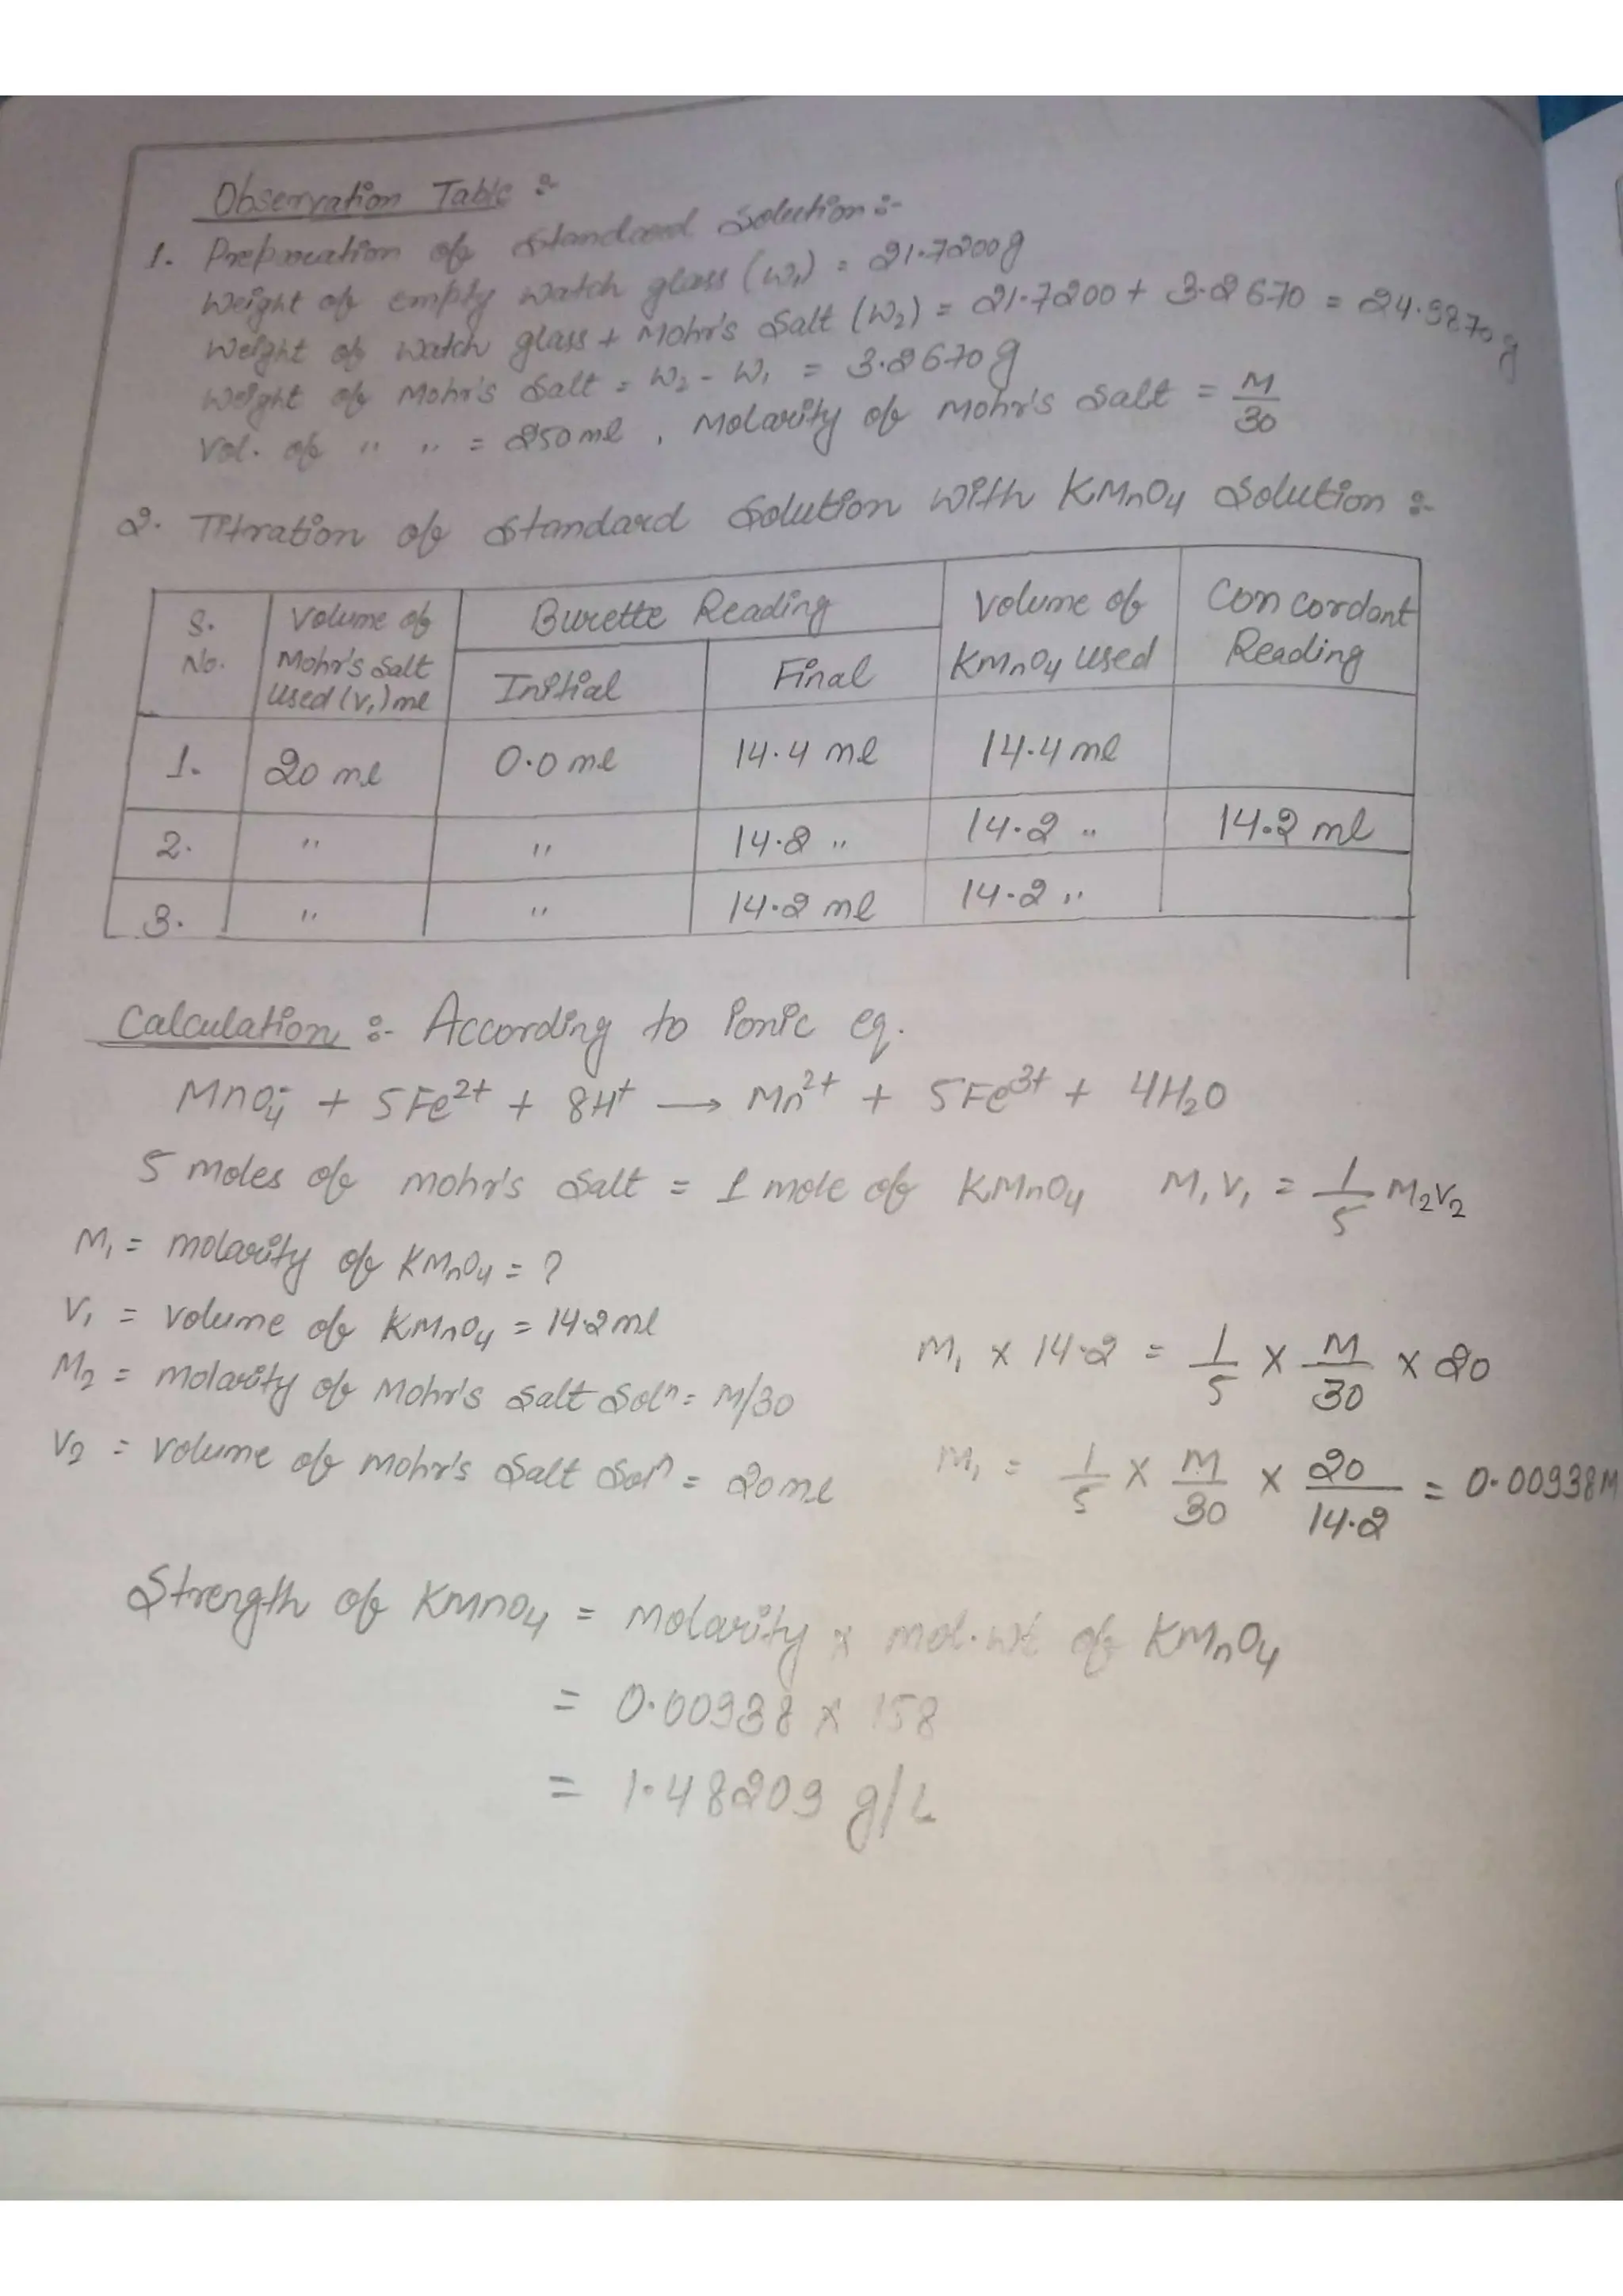 Observation Table :-
1. Preparation of Standard Solution :-
Weight of empty watch glass (W₁) = 21.7200g
Weight of watch glass + Mohr's Salt (W₂) = 21.7200 + 3.2670 = 24.9870 g
Weight of Mohr's Salt = W₂ - W₁ = 3.2670 g
Vol. of " " = 250 ml , Molarity of Mohr's Salt = M/30
2. Titration of Standard Solution with KMnO₄ Solution :-
S. No. | Volume of Mohr's Salt used (V₁) ml | Burette Reading | Volume of KMnO₄ used | Concordant Reading
Initial | Final
1. | 20 ml | 0.0 ml | 14.4 ml | 14.4 ml
2. | " | " | 14.2 " | 14.2 " | 14.2 ml
3. | " | " | 14.2 ml | 14.2 "
Calculation :- According to ionic eq.
MnO₄⁻ + 5Fe²⁺ + 8H⁺ → Mn²⁺ + 5Fe³⁺ + 4H₂O
5 moles of mohr's Salt = 1 mole of KMnO₄ M₁V₁ = 1/5 M₂V₂
M₁ = molarity of KMnO₄ = ?
V₁ = volume of KMnO₄ = 14.2 ml
M₂ = molarity of Mohr's Salt Solⁿ = M/30
V₂ = volume of mohr's Salt Solⁿ = 20 ml
M₁ x 14.2 = 1/5 x M/30 x 20
M₁ = 1/5 x M/30 x 20/14.2 = 0.00938M
Strength of KMnO₄ = Molarity x mol. wt of KMnO₄
= 0.00938 x 158
= 1.48209 g/L